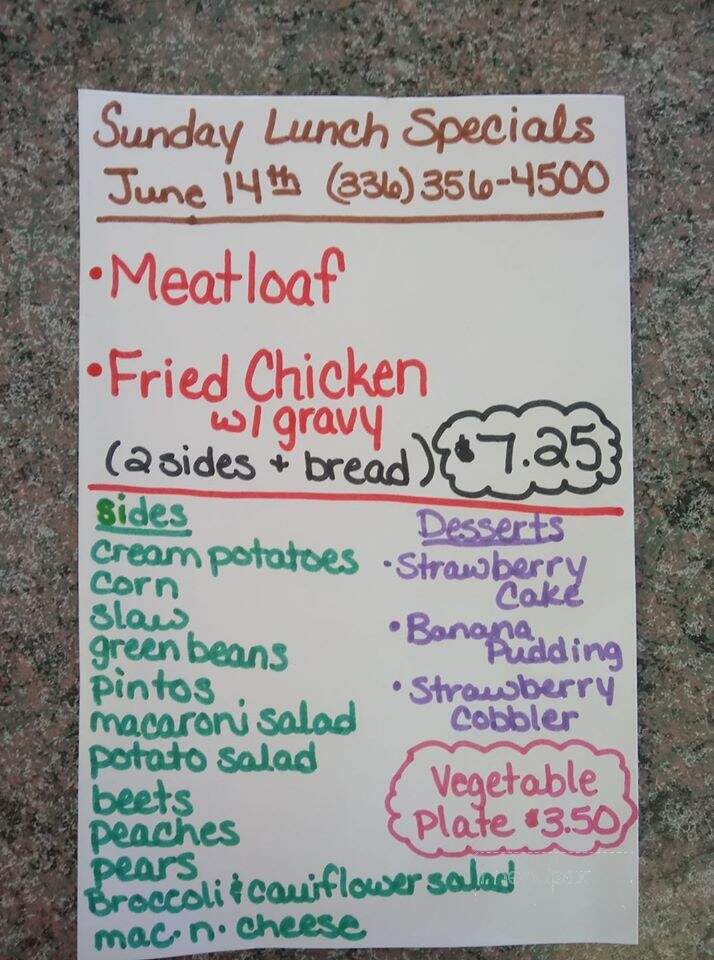 Sunday Lunch Specials
June 14th (336) 356-4500
• Meatloaf
• Fried Chicken
w/ gravy
(2 sides + bread) $7.25
Sides
cream potatoes
corn
slaw
green beans
pintos
macaroni salad
potato salad
beets
peaches
pears
Broccoli & cauiflower salad
mac. n. cheese
Desserts
• Strawberry
Cake
• Banana
Pudding
• Strawberry
Cobbler
Vegetable
Plate $3.50